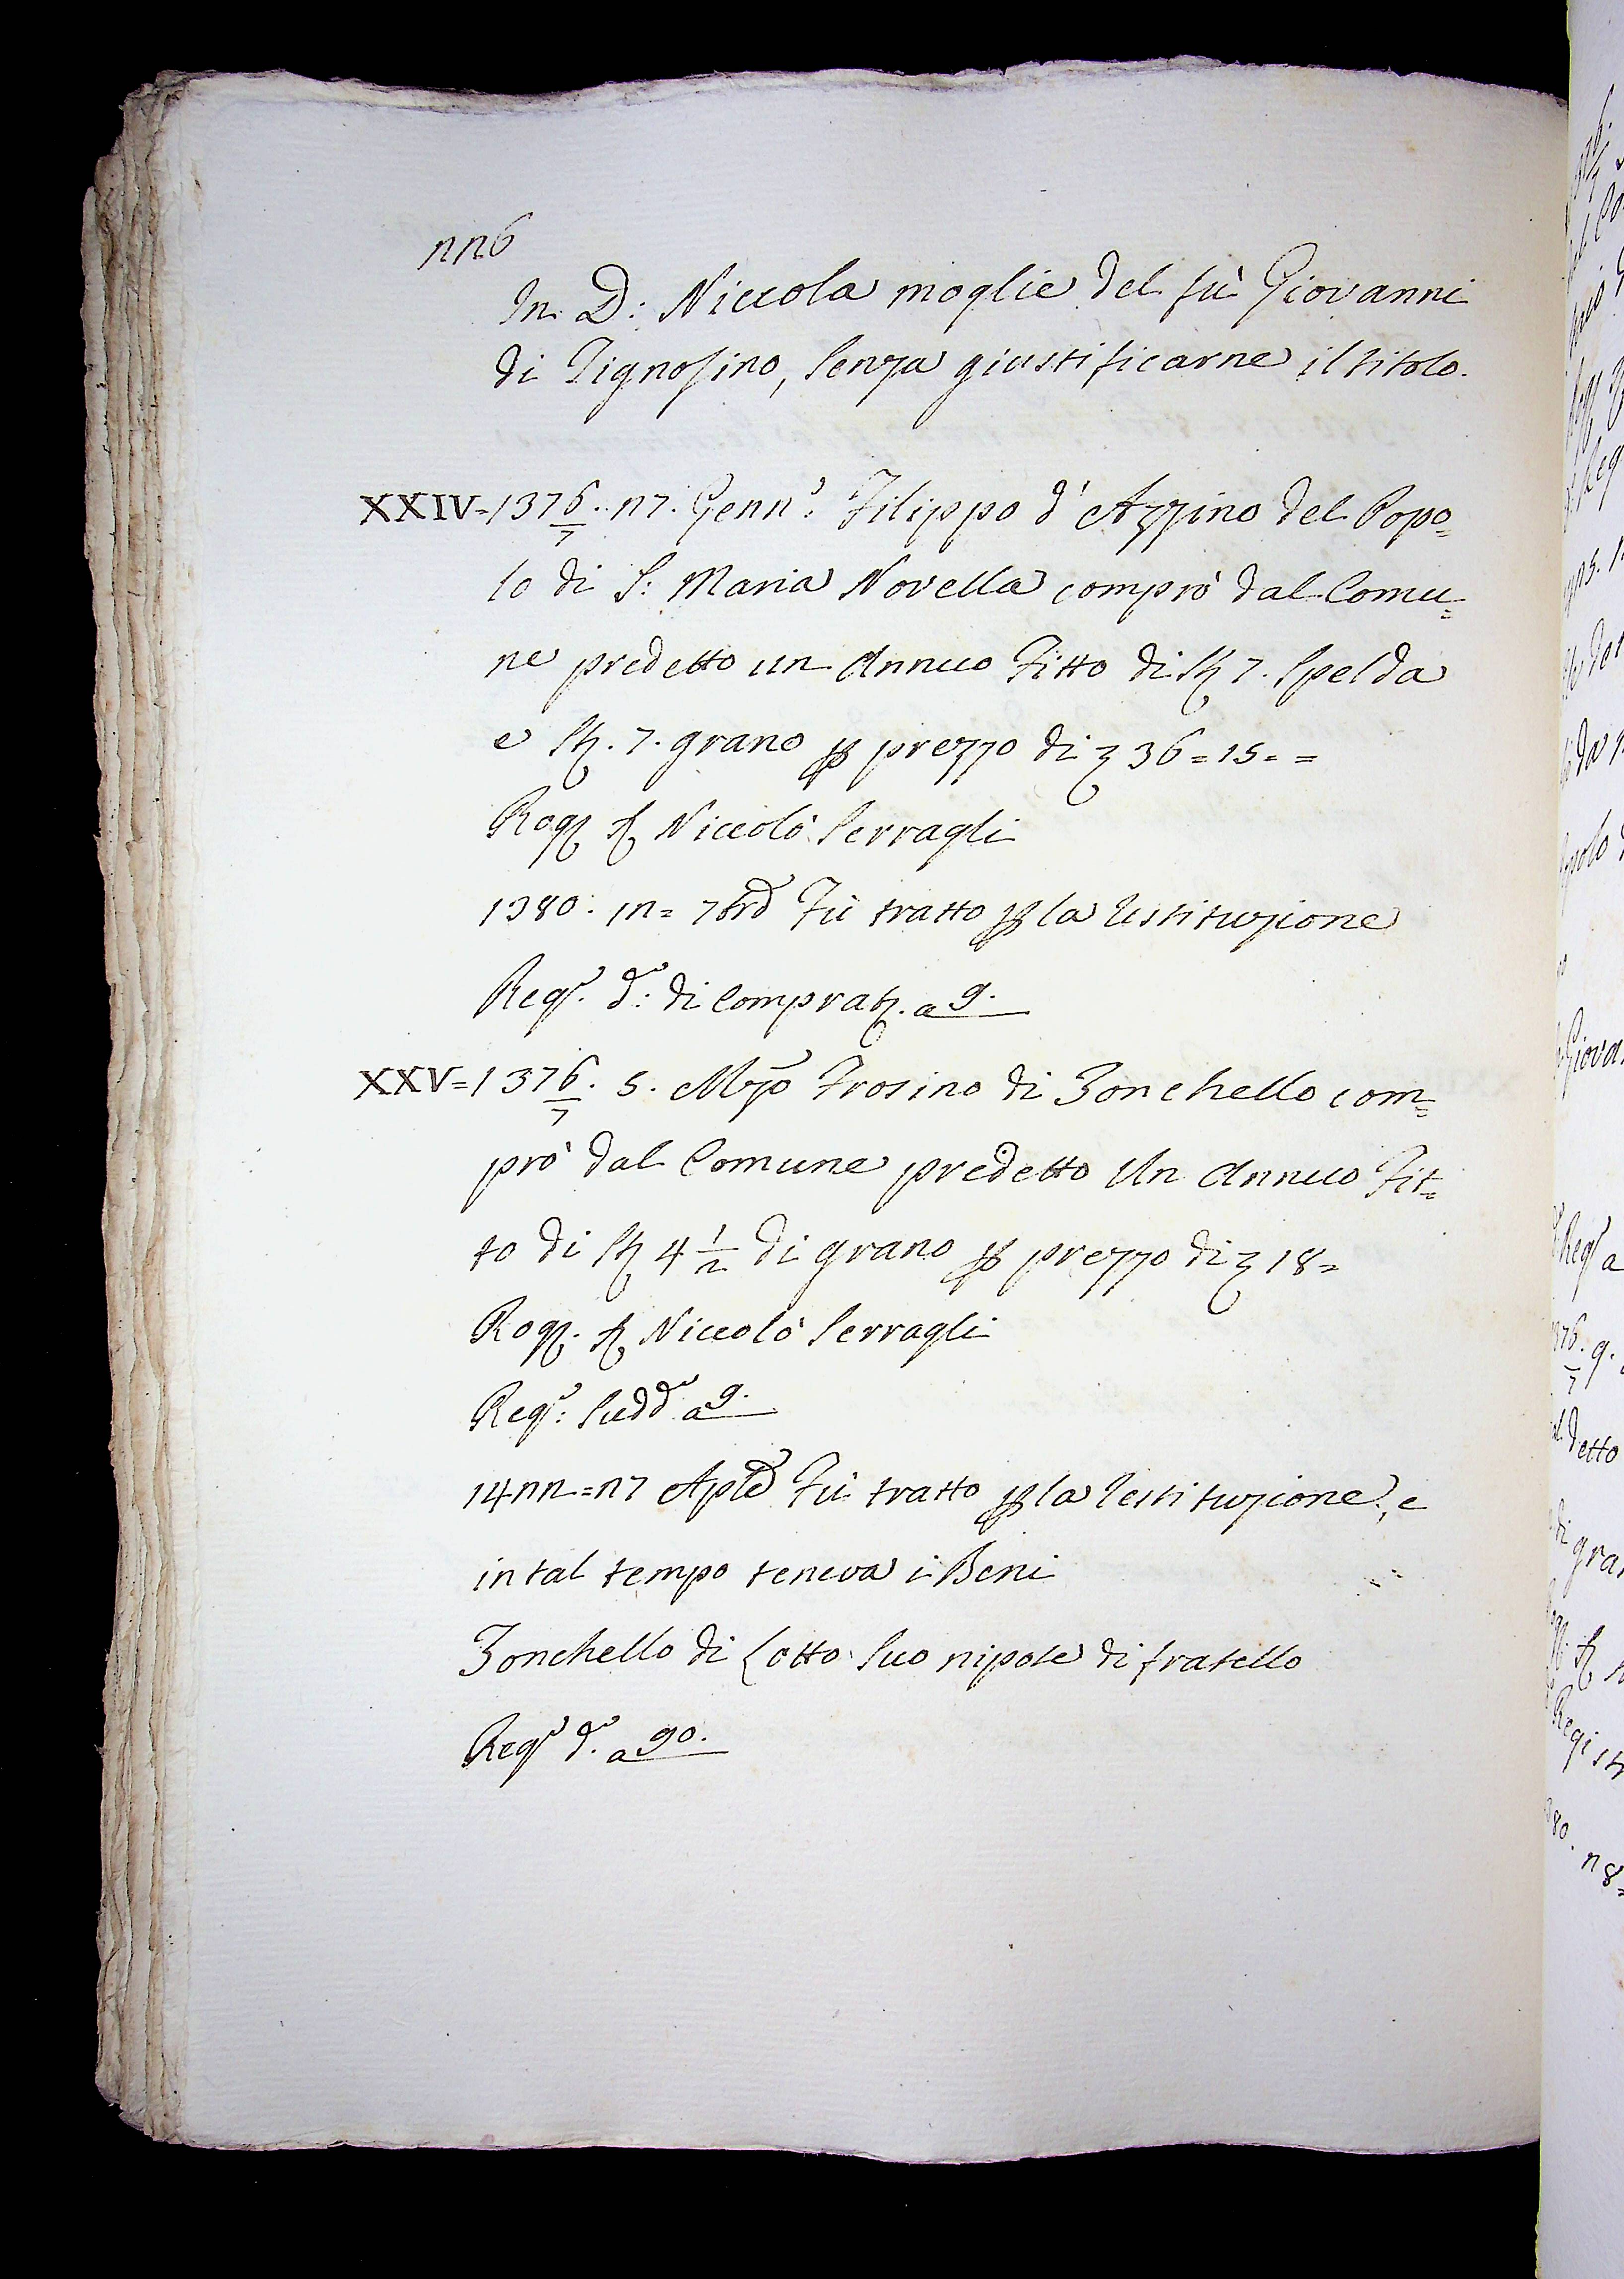 226
In D: Niccola moglie del fù Giovanni
di Tignosino, senza giustificarne il titolo.
XXIV = 1376/7. 27. Genn.º Filippo d'Azzino del Popo=
lo di S: Maria Novella comprò dal Comu=
ne predetto un Annuo Fitto di St 7. Spelda
e St. 7. grano p prezzo di 36 = 15 = =
Rog. S Niccolò Serragli
1380. 12 = 7bre Fù tratto p la restituzione
Reg.º d.º: di Comprat. a 9.
XXV = 1376/7. 5. Mzo Frosino di Zonchello com=
prò dal Comune predetto Un Annuo Fit=
to di St 4 1/2 di grano p prezzo di 18 =
Rog. S Niccolò Serragli
Reg.º: Sudd.º a 9.
1422 = 27 Aple Fù tratto p la restituzione, e
in tal tempo teneva i Beni
Zonchello di Lotto suo nipote di fratello
Reg.º d.º a 90.